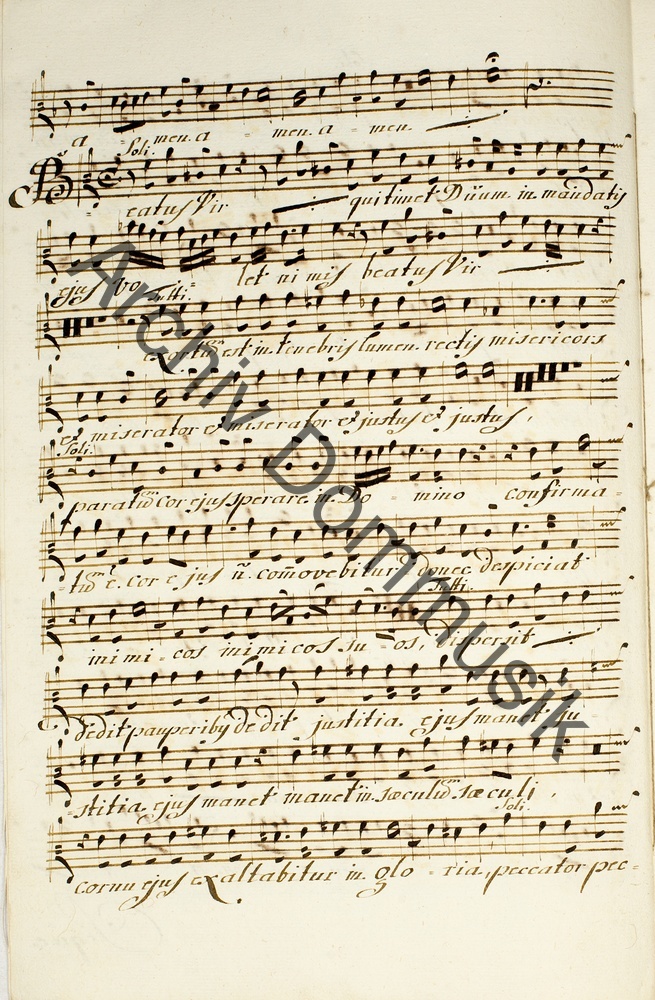 a - men. a - men. a - men.
Soli.
Beatus Vir qui timet Dnum. in mandatis
ejus vo - let nimis beatus Vir
Tutti.
exortum est in tenebris lumen rectis misericors
et miserator et miserator et justus et justus,
Soli.
paratum Cor ejus sperare in Do - mino confirma -
tum e. Cor ejus n. comovebitur donec despiciat
Tutti.
inimi - cos inimicos su - os, dispersit
dedit pauperiby dedit justitia ejus manet ju -
stitia ejus manet manet in sæculum sæculi,
Soli.
cornu ejus exaltabitur in glo - ria, peccator pec -
Archiv Dommusik